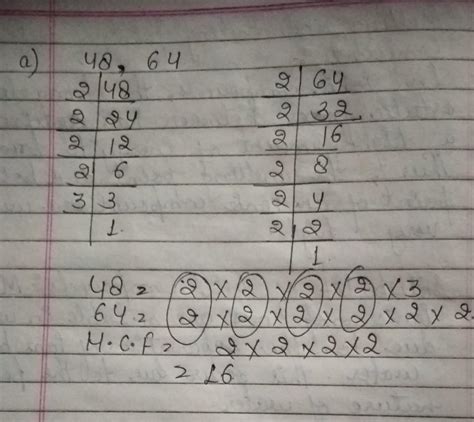 a) 48, 64
2 48 2 64
2 24 2 32
2 12 2 16
2 6 2 8
3 3 2 4
1. 2 2
1.
48 = 2 × 2 × 2 × 2 × 3
64 = 2 × 2 × 2 × 2 × 2 × 2.
H.C.F = 2 × 2 × 2 × 2
= 16